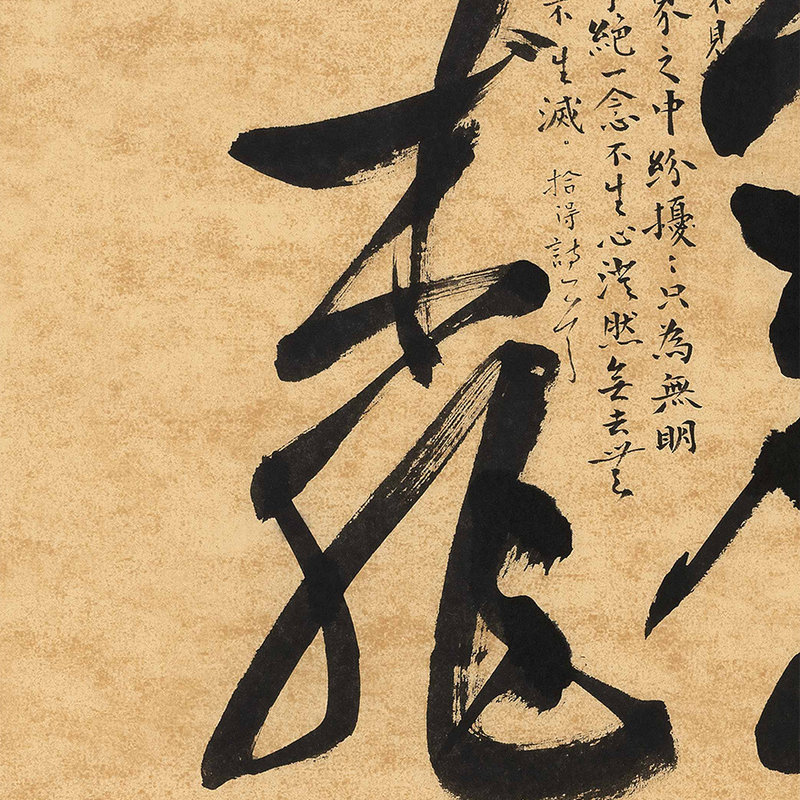 不見
界之中紛擾〻只為無明
了絕一念不生心澄然無去無
不生滅。
拾得詩一首
龍